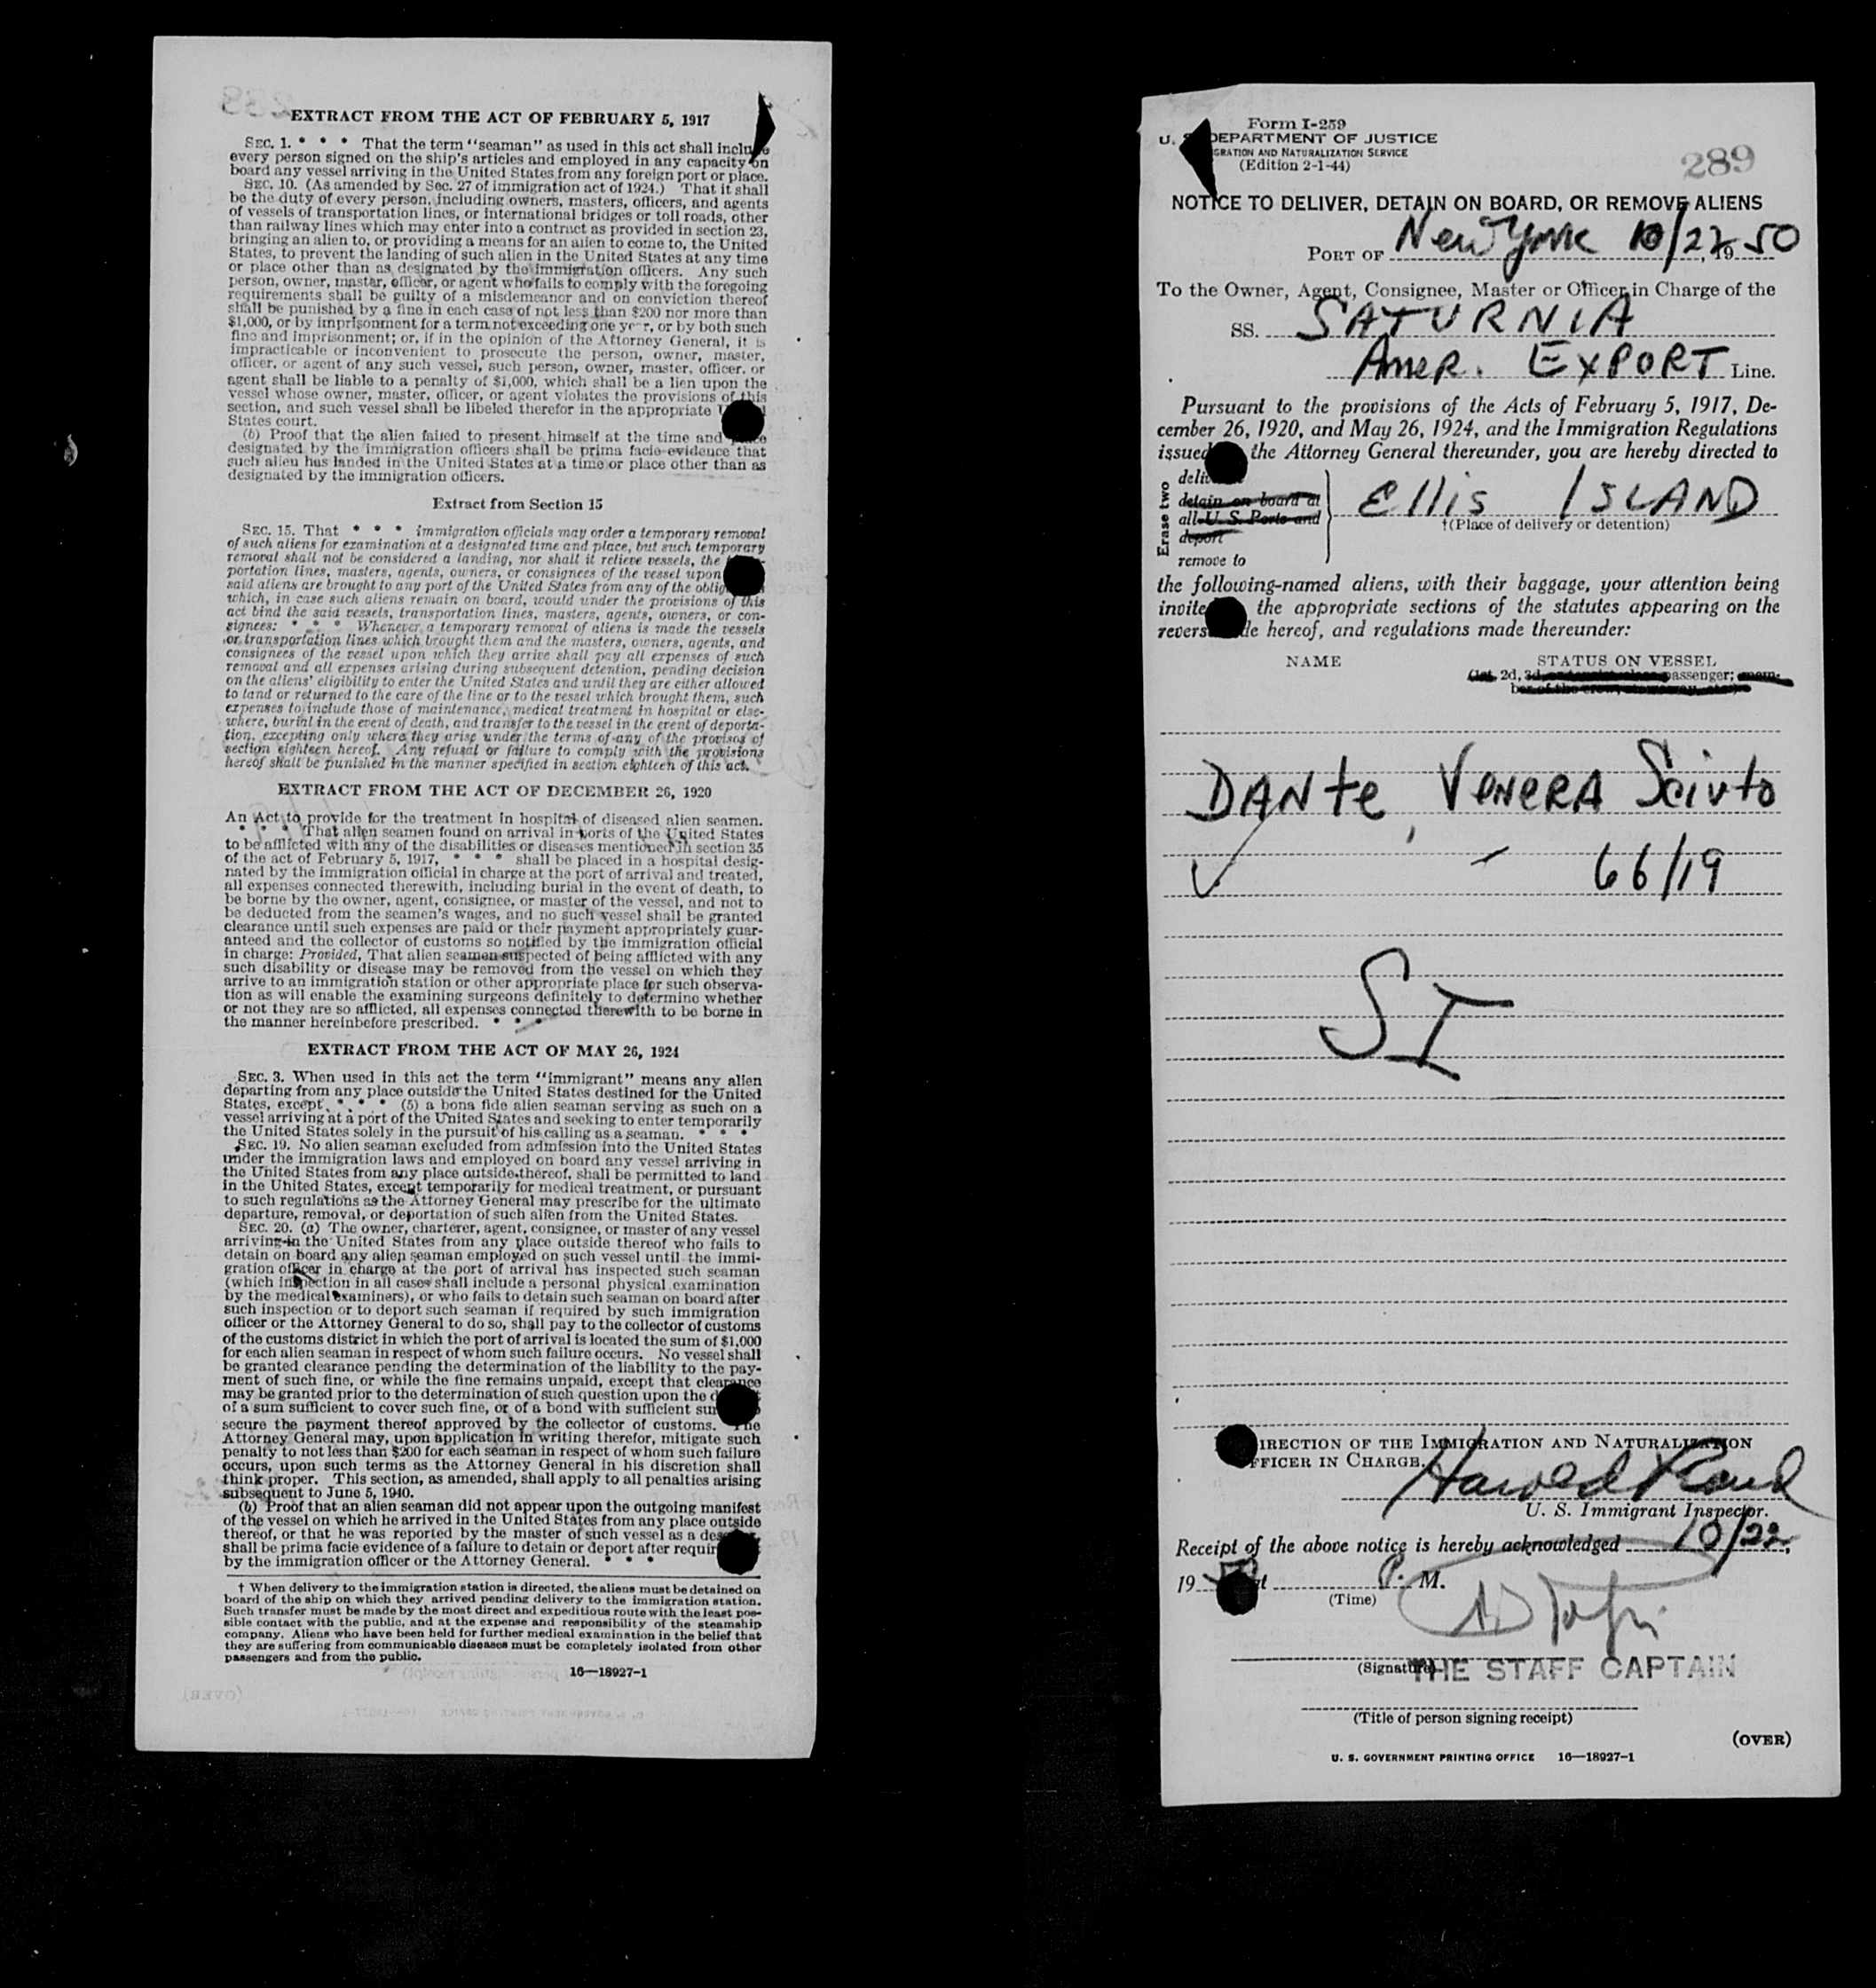 EXTRACT FROM THE ACT OF FEBRUARY 5, 1917
SEC. 1. * * * That the term "seaman" as used in this act shall include
every person signed on the ship's articles and employed in any capacity on
board any vessel arriving in the United States from any foreign port or place.
SEC. 10. (As amended by Sec. 27 of immigration act of 1924.) That it shall
be the duty of every person, including owners, masters, officers, and agents
of vessels of transportation lines, or international bridges or toll roads, other
than railway lines which may enter into a contract as provided in section 23,
bringing an alien to, or providing a means for an alien to come to, the United
States, to prevent the landing of such alien in the United States at any time
or place other than as designated by the immigration officers. Any such
person, owner, master, officer, or agent who fails to comply with the foregoing
requirements shall be guilty of a misdemeanor and on conviction thereof
shall be punished by a fine in each case of not less than $200 nor more than
$1,000, or by imprisonment for a term not exceeding one year, or by both such
fine and imprisonment; or, if in the opinion of the Attorney General, it is
impracticable or inconvenient to prosecute the person, owner, master,
officer, or agent of any such vessel, such person, owner, master, officer, or
agent shall be liable to a penalty of $1,000, which shall be a lien upon the
vessel whose owner, master, officer, or agent violates the provisions of this
section, and such vessel shall be libeled therefor in the appropriate
States court.
(b) Proof that the alien failed to present himself at the time and place
designated by the immigration officers shall be prima facie evidence that
such alien has landed in the United States at a time or place other than as
designated by the immigration officers.
Extract from Section 15
SEC. 15. That * * * immigration officials may order a temporary removal
of such aliens for examination at a designated time and place, but such temporary
removal shall not be considered a landing, nor shall it relieve vessels, the
portation lines, masters, agents, owners, or consignees of the vessel upon
said aliens are brought to any port of the United States from any of the
which, in case such aliens remain on board, would under the provisions of this
act bind the said vessels, transportation lines, masters, agents, owners, or con-
signees: * * * Whenever a temporary removal of aliens is made the vessels
or transportation lines which brought them and the masters, owners, agents, and
consignees of the vessel upon which they arrive shall pay all expenses of such
removal and all expenses arising during subsequent detention, pending decision
on the aliens' eligibility to enter the United States and until they are either allowed
to land or returned to the care of the line or to the vessel which brought them, such
expenses to include those of maintenance, medical treatment in hospital or else-
where, burial in the event of death, and transfer to the vessel in the event of deporta-
tion, excepting only where they arise under the terms of any of the provisos of
section eighteen hereof. Any refusal or failure to comply with the provisions
hereof shall be punished in the manner specified in section eighteen of this act.
EXTRACT FROM THE ACT OF DECEMBER 26, 1920
An Act to provide for the treatment in hospital of diseased alien seamen.
* * * That alien seamen found on arrival in ports of the United States
to be afflicted with any of the disabilities or diseases mentioned in section 35
of the act of February 5, 1917, * * * shall be placed in a hospital desig-
nated by the immigration official in charge at the port of arrival and treated,
all expenses connected therewith, including burial in the event of death, to
be borne by the owner, agent, consignee, or master of the vessel, and not to
be deducted from the seamen's wages, and no such vessel shall be granted
clearance until such expenses are paid or their payment appropriately guar-
anteed and the collector of customs so notified by the immigration official
in charge: Provided, That alien seamen suspected of being afflicted with any
such disability or disease may be removed from the vessel on which they
arrive to an immigration station or other appropriate place for such observa-
tion as will enable the examining surgeons definitely to determine whether
or not they are so afflicted, all expenses connected therewith to be borne in
the manner hereinbefore prescribed. * * *
EXTRACT FROM THE ACT OF MAY 26, 1924
SEC. 3. When used in this act the term "immigrant" means any alien
departing from any place outside the United States destined for the United
States, except * * * (5) a bona fide alien seaman serving as such on a
vessel arriving at a port of the United States and seeking to enter temporarily
the United States solely in the pursuit of his calling as a seaman. * * *
SEC. 19. No alien seaman excluded from admission into the United States
under the immigration laws and employed on board any vessel arriving in
the United States from any place outside thereof, shall be permitted to land
in the United States, except temporarily for medical treatment, or pursuant
to such regulations as the Attorney General may prescribe for the ultimate
departure, removal, or deportation of such alien from the United States.
SEC. 20. (a) The owner, charterer, agent, consignee, or master of any vessel
arriving in the United States from any place outside thereof who fails to
detain on board any alien seaman employed on such vessel until the immi-
gration officer in charge at the port of arrival has inspected such seaman
(which inspection in all cases shall include a personal physical examination
by the medical examiners), or who fails to detain such seaman on board after
such inspection or to deport such seaman if required by such immigration
officer or the Attorney General to do so, shall pay to the collector of customs
of the customs district in which the port of arrival is located the sum of $1,000
for each alien seaman in respect of whom such failure occurs. No vessel shall
be granted clearance pending the determination of the liability to the pay-
ment of such fine, or while the fine remains unpaid, except that clearance
may be granted prior to the determination of such question upon the
of a sum sufficient to cover such fine, or of a bond with sufficient
secure the payment thereof approved by the collector of customs. The
Attorney General may, upon application in writing therefor, mitigate such
penalty to not less than $200 for each seaman in respect of whom such failure
occurs, upon such terms as the Attorney General in his discretion shall
think proper. This section, as amended, shall apply to all penalties arising
subsequent to June 5, 1940.
(b) Proof that an alien seaman did not appear upon the outgoing manifest
of the vessel on which he arrived in the United States from any place outside
thereof, or that he was reported by the master of such vessel as a
shall be prima facie evidence of a failure to detain or deport after
by the immigration officer or the Attorney General. * * *
† When delivery to the immigration station is directed, the aliens must be detained on
board of the ship on which they arrived pending delivery to the immigration station.
Such transfer must be made by the most direct and expeditious route with the least pos-
sible contact with the public, and at the expense and responsibility of the steamship
company. Aliens who have been held for further medical examination in the belief that
they are suffering from communicable diseases must be completely isolated from other
passengers and from the public.
16—18927-1
Form I-259
U. S. DEPARTMENT OF JUSTICE
IGRATION AND NATURALIZATION SERVICE
(Edition 2-1-44)
289
NOTICE TO DELIVER, DETAIN ON BOARD, OR REMOVE ALIENS
PORT OF New York 10/22, 1950
To the Owner, Agent, Consignee, Master or Officer in Charge of the
SS. SATURNIA
Amer. EXPORT Line.
Pursuant to the provisions of the Acts of February 5, 1917, De-
cember 26, 1920, and May 26, 1924, and the Immigration Regulations
issued the Attorney General thereunder, you are hereby directed to
Erase two
deliver
detain on board at
all U. S. Ports and
deport
remove to
Ellis ISLAND
†(Place of delivery or detention)
the following-named aliens, with their baggage, your attention being
invited the appropriate sections of the statutes appearing on the
reverse side hereof, and regulations made thereunder:
NAME STATUS ON VESSEL
(1st, 2d, 3d, or tourist class passenger; mem-
ber of the crew, stowaway, etc.)
DANte, VeneRA Sciuto
66/19
SI
DIRECTION OF THE IMMIGRATION AND NATURALIZATION
OFFICER IN CHARGE.
Harold
U. S. Immigrant Inspector.
Receipt of the above notice is hereby acknowledged 10/22,
19 at P. M.
(Time)
(Signature)
THE STAFF CAPTAIN
(Title of person signing receipt)
(OVER)
U. S. GOVERNMENT PRINTING OFFICE 16—18927-1